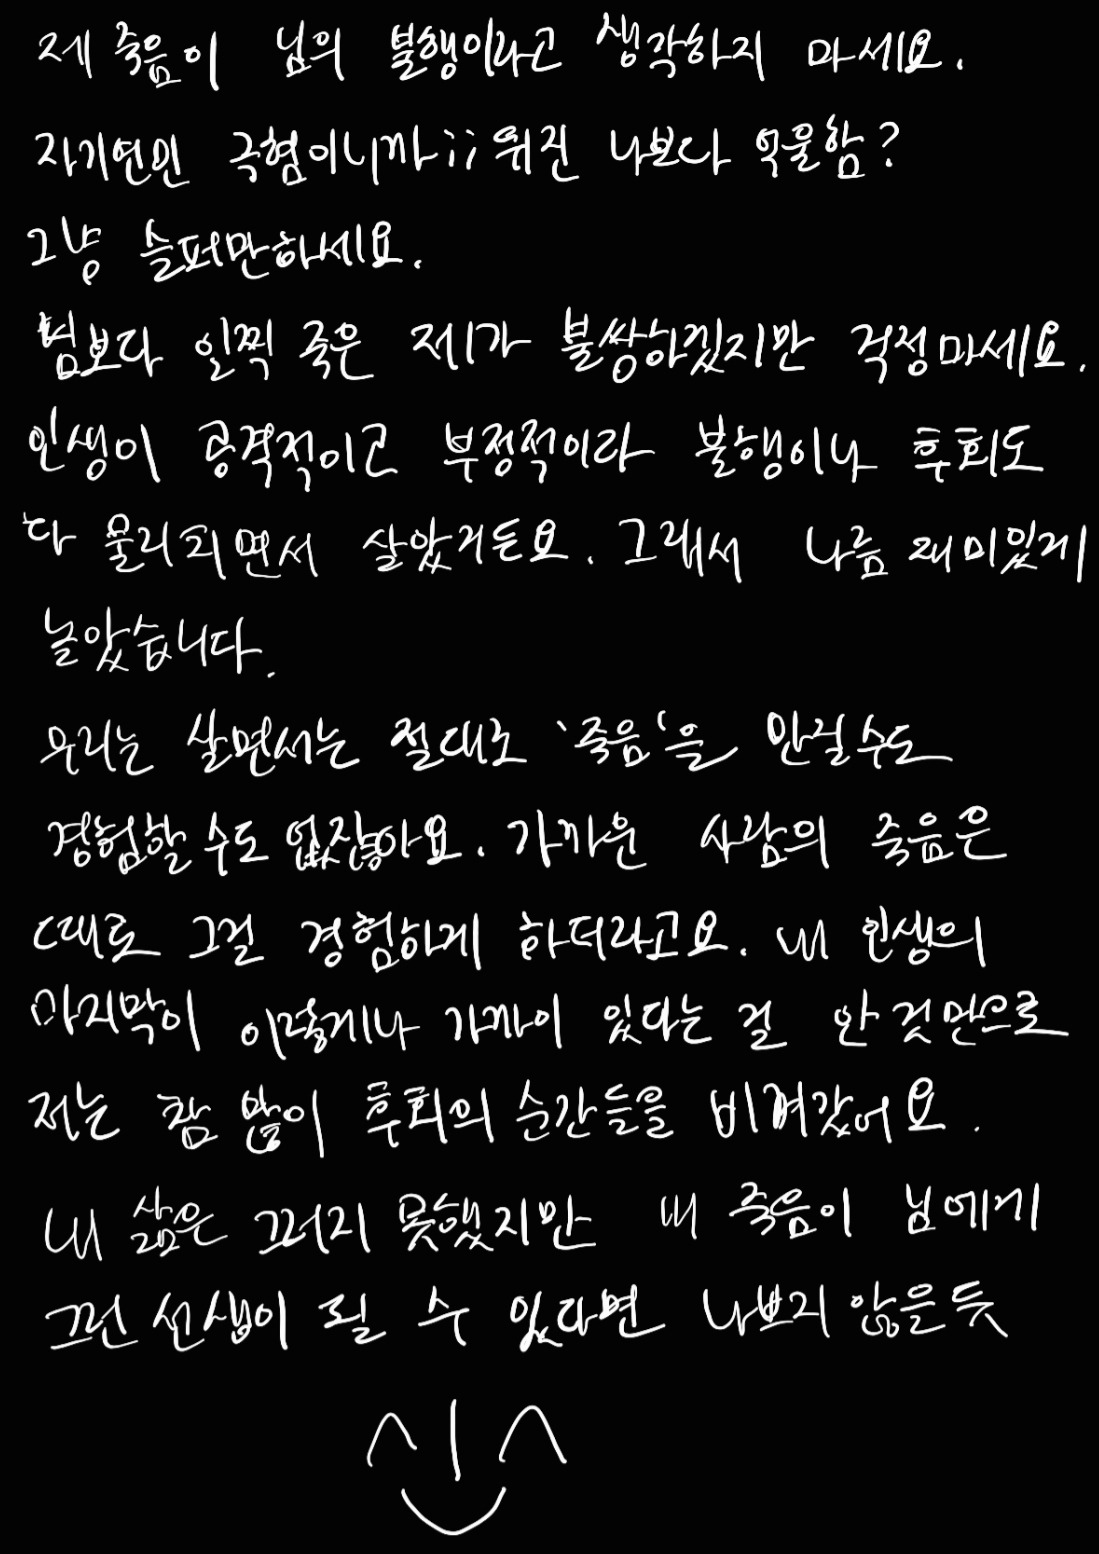 제 죽음이 님의 불행이라고 생각하지 마세요.
자기연민 극혐이니까;; 뒤진 나보다 억울함?
그냥 슬퍼만하세요.
님보다 일찍 죽은 제가 불쌍하겠지만 걱정마세요.
인생이 공격적이고 부정적이라 불행이나 후회도
다 물리되면서 살았거든요. 그래서 나름 재미있게
놀았습니다.
우리는 살면서는 절대로 '죽음'을 만질수도
경험할 수도 없잖아요. 가까운 사람의 죽음은
때로 그걸 경험하게 하더라고요. 내 인생의
마지막이 이렇게나 가까이 있다는 걸 안 것만으로
저는 참 많이 후회의 순간들을 비껴갔어요.
내 삶은 그러지 못했지만 내 죽음이 님에게
그런 선생이 될 수 있다면 나쁘지 않을듯